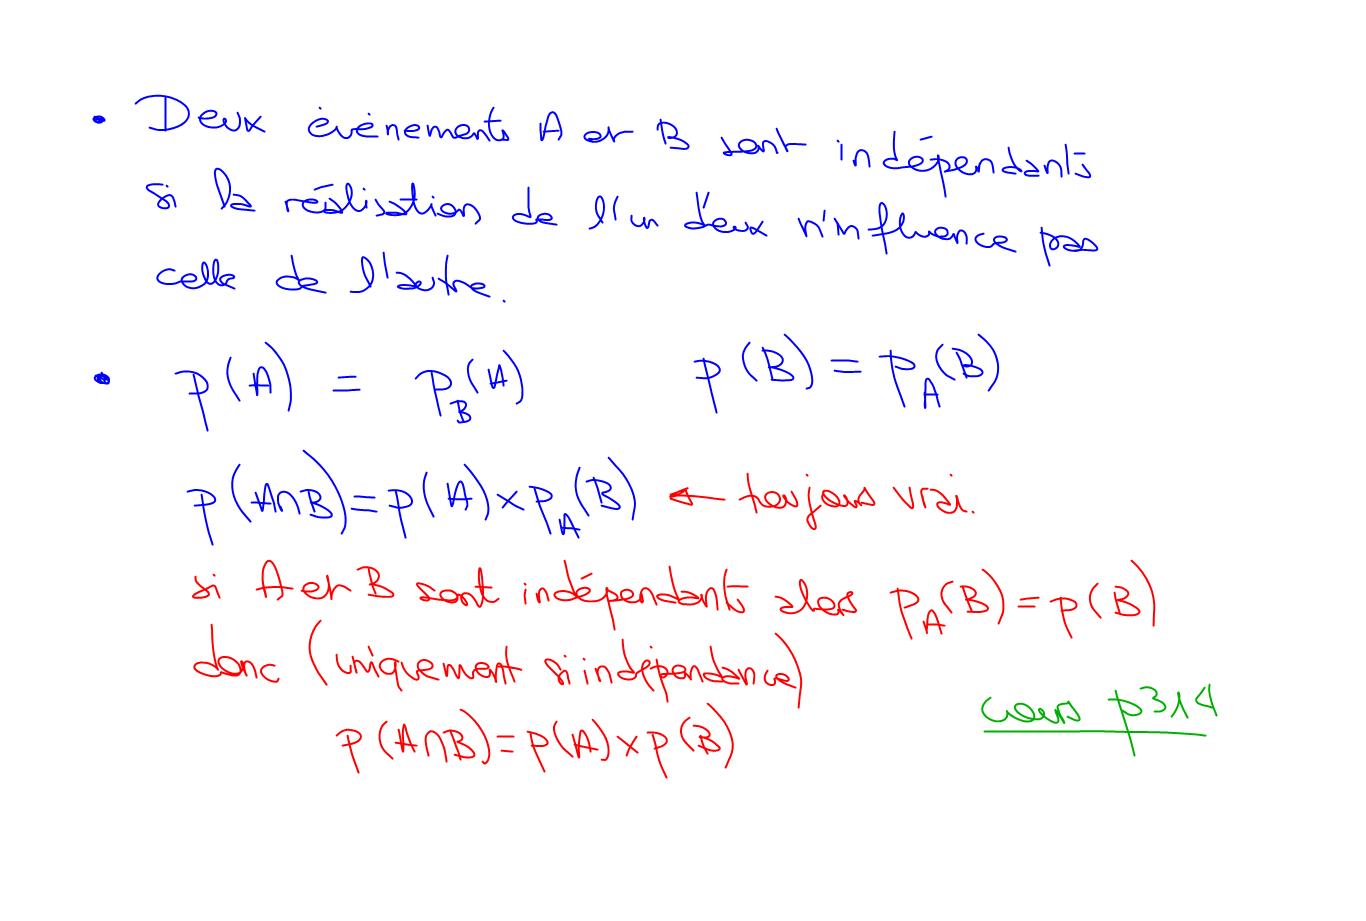 • Deux événements A et B sont indépendants
si la réalisation de l'un d'eux n'influence pas
celle de l'autre.
• p(A) = p_B(A) p(B) = p_A(B)
p(A∩B) = p(A) × p_A(B) ← toujours vrai.
si A et B sont indépendants alors p_A(B) = p(B)
donc (uniquement si indépendance)
p(A∩B) = p(A) × p(B)
cours p314